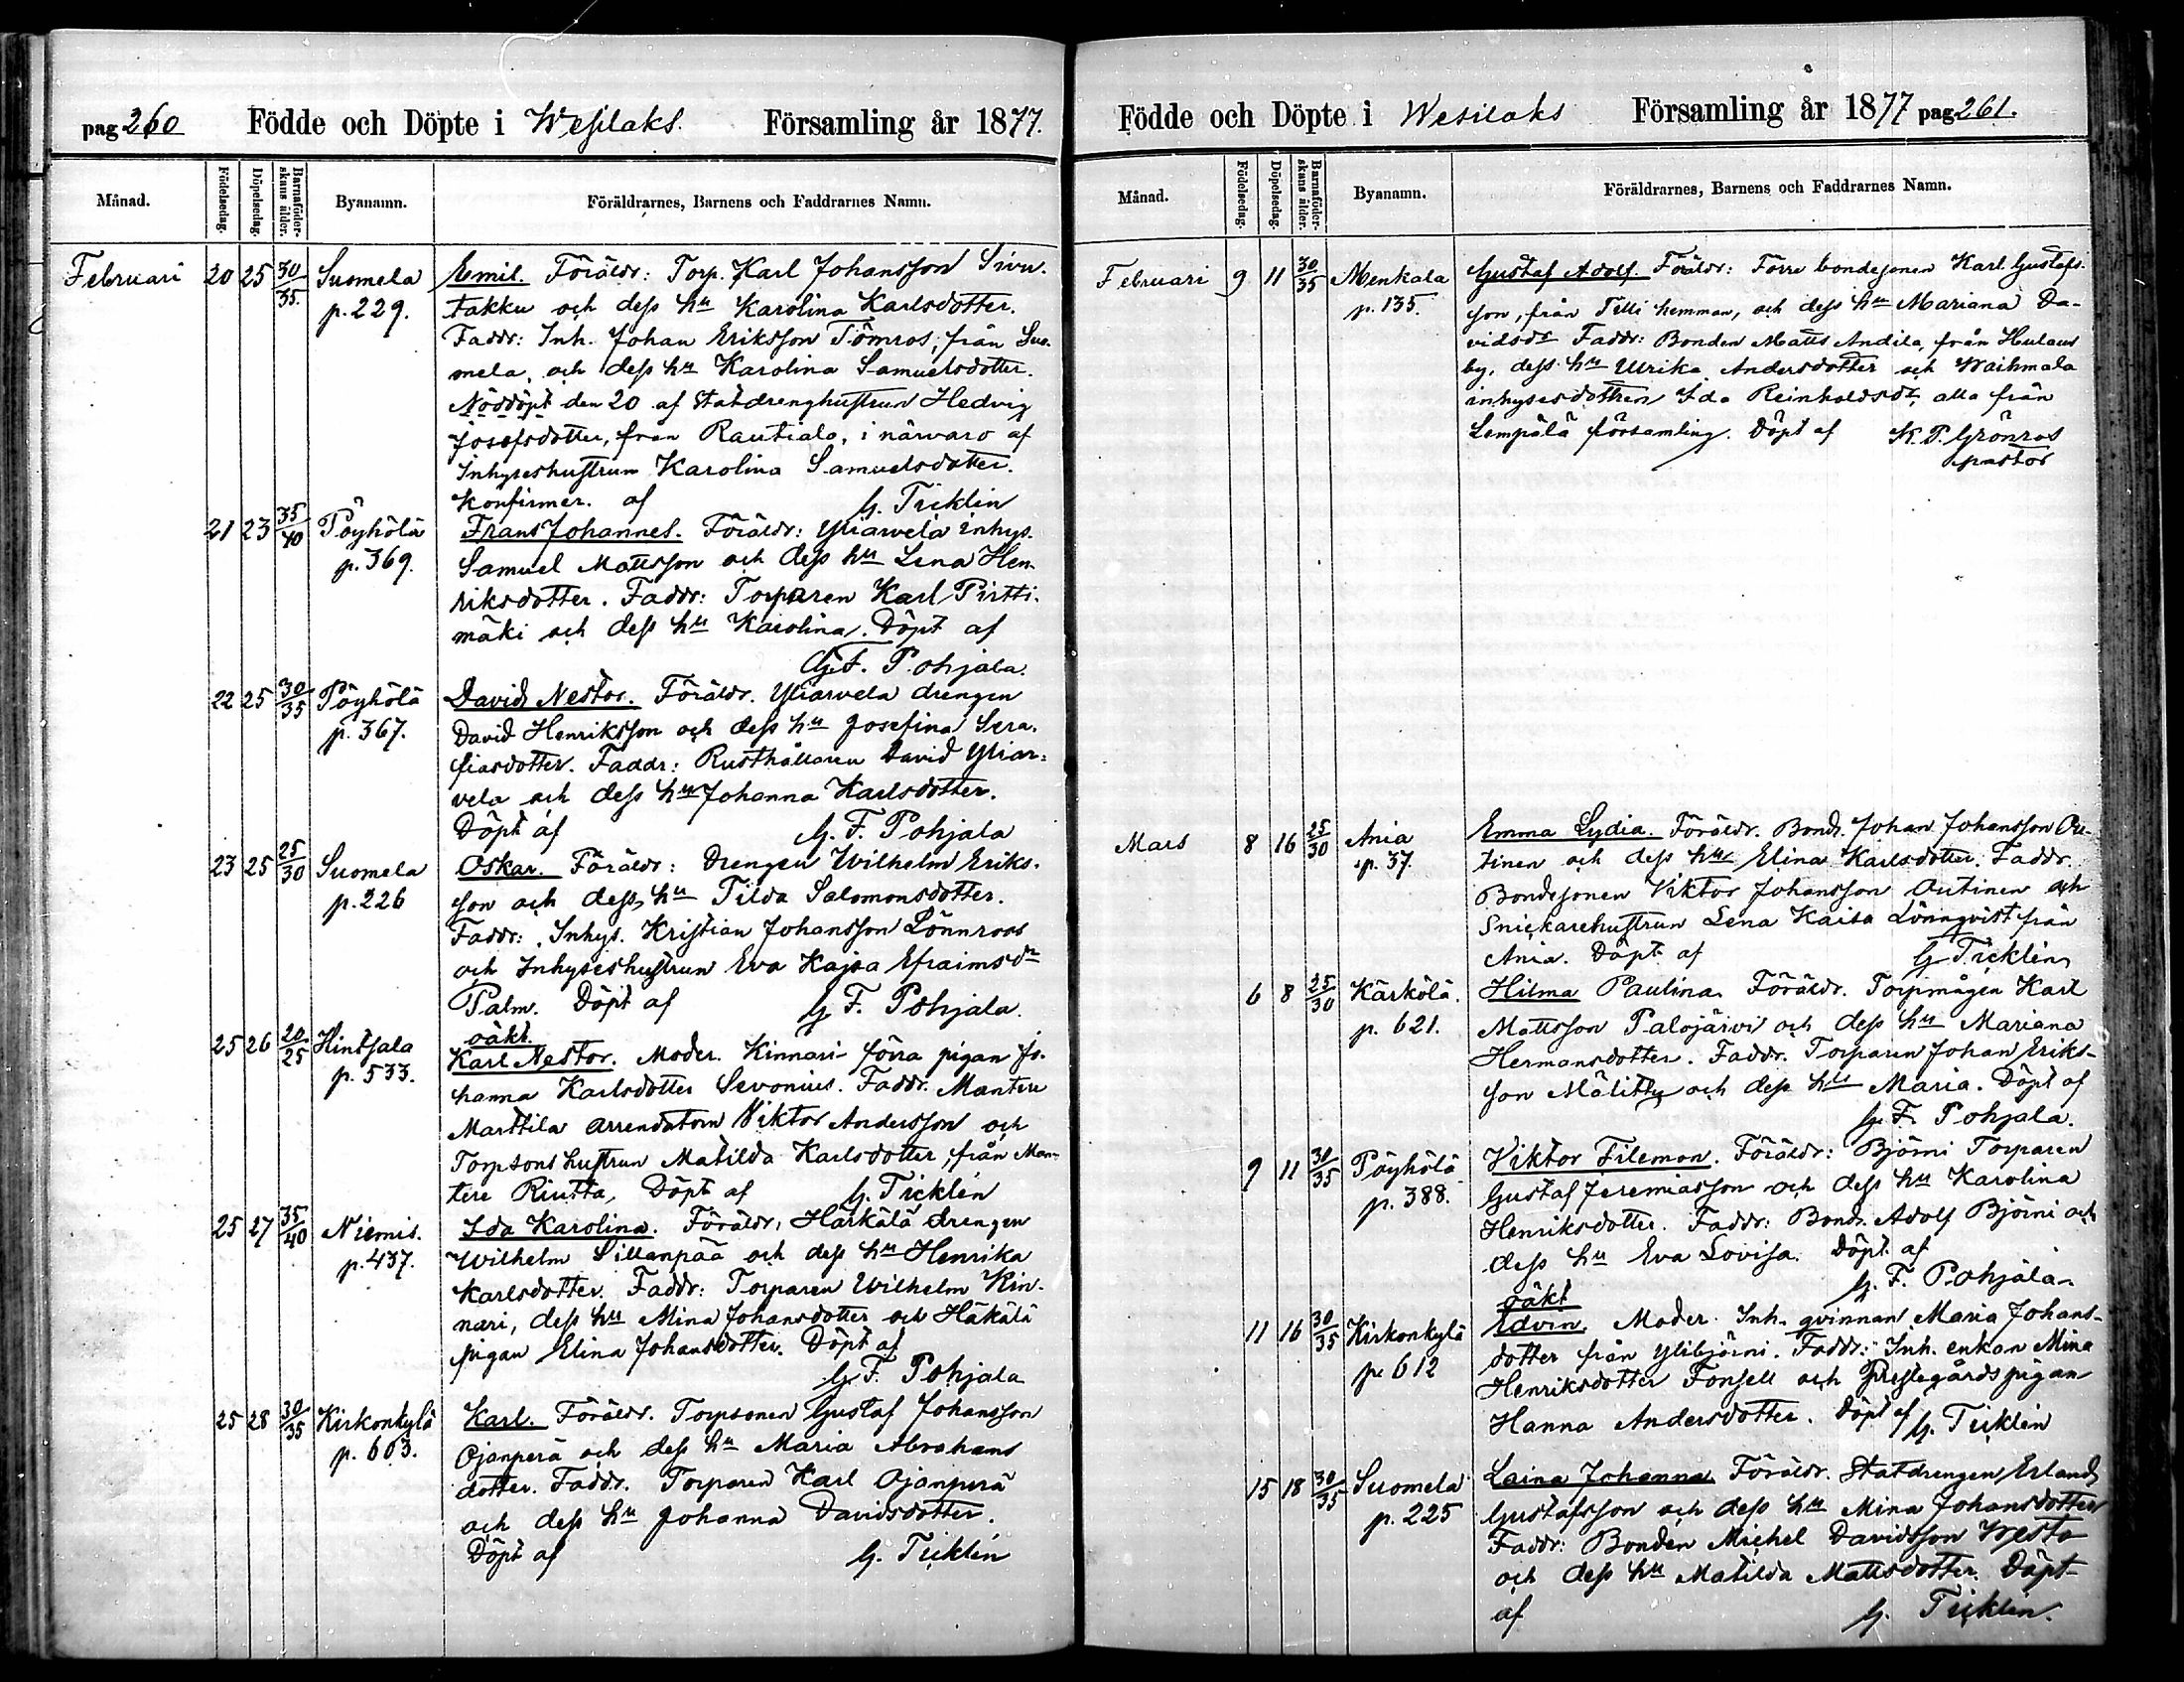 pag 260 Födde och Döpte i Wesilaks. Församling år 1877.
Månad. Födelsedag. Döpelsedag. Barnaföderskans ålder. Byanamn. Föräldrarnes, Barnens och Faddrarnes Namn.
Februari 20 25 30/35. Suomela Emil. Föräldr: Torp. Karl Johansson Sivu-
p. 229. takku och dess hu Karolina Karlsdotter.
Faddr: Inh. Johan Eriksson Tömros, från Suo-
mela, och dess hu Karolina Samuelsdotter.
Nöddöpt den 20 af Statdrenghustrun Hedvig
Josefsdotter, från Rautiala, i närvaro af
Inhyseshustrun Karolina Samuelsdotter.
Konfirmer. af G. Ticklén
21 23 35/40 Pöyhölä Frans Johannes. Föräldr: Yliarvela inhys.
p. 369. Samuel Mattsson och dess hu Lena Hen-
riksdotter. Faddr: Torparen Karl Pirtti-
mäki och dess hu Karolina. Döpt af
G. F. Pohjala.
22 25 30/35 Pöyhölä David Nestor. Föräldr. Yliarvela drengen
p. 367. David Henriksson och dess hu Josefina Sera-
fiasdotter. Faddr: Rusthållaren David Yliar-
vela och dess hu Johanna Karlsdotter.
Döpt af G. F. Pohjala
23 25 25/30 Suomela Oskar. Föräldr: Drengen Wilhelm Eriks-
p. 226 son och dess hu Tilda Salomonsdotter.
Faddr: Inhys. Kristian Johansson Lönnroos
och Inhyseshustrun Eva Kajsa Efraimsdr
Palm. Döpt af G. F. Pohjala.
oäkt.
25 26 20/25 Hintsala Karl Nestor. Moder. Kinnari förra pigan Jo-
p. 533. hanna Karlsdotter Sevonius. Faddr. Mantere
Marttila arrendatorn Viktor Andersson och
Torpsons hustrun Matilda Karlsdotter, från Man-
tere Riutta, Döpt af G. Ticklén
25 27 35/40 Niemis. Ida Karolina. Föräldr, Härkälä drengen
p. 437. Wilhelm Sillanpää och dess hu Henrika
Karlsdotter. Faddr: Torparen Wilhelm Kin-
nari, dess hu Mina Johansdotter och Häkälä
pigan Elina Johansdotter. Döpt af
G. F. Pohjala
25 28 30/35 Kirkonkylä Karl. Föräldr. Torpsonen Gustaf Johansson
p. 603. Ojanperä och dess hu Maria Abrahams
dotter. Faddr. Torparen Karl Ojanperä
och dess hu Johanna Davidsdotter.
Döpt af G. Ticklén
Födde och Döpte i Wesilaks Församling år 1877 pag 261.
Månad. Födelsedag. Döpelsedag. Barnaföderskans ålder. Byanamn. Föräldrarnes, Barnens och Faddrarnes Namn.
Februari 9 11 30/35 Menkala Gustaf Adolf. Föräldr: Förre bondesonen Karl Gustafs-
p. 135. son, från Tilli hemman, och dess hu Mariana Da-
vidsdr Faddr: Bonden Matts Andila, från Hulaus
by, dess hu Ulrika Andersdotter och Waihmala
inhysesdottren Ida Reinholdsdr, alla från
Lempälä församling. Döpt af K. P. Grönros
pastor
Mars 8 16 25/30 Ania Emma Lydia. Föräldr. Bond. Johan Johansson Ou-
p. 37. tinen och dess hu Elina Karlsdotter. Faddr.
Bondesonen Viktor Johansson Outinen och
Snickarehustrun Lena Kaisa Lönnqvist från
Ania. Döpt af G Ticklén
6 8 25/30 Kärkölä. Hilma Paulina. Föräldr. Torpmågen Karl
p. 621. Mattsson Palojärvi och dess hu Mariana
Hermansdotter. Faddr. Torparen Johan Eriks-
son Mälitty och dess hu Maria. Döpt af
G. F. Pohjala.
9 11 30/35 Pöyhölä Viktor Filemon. Föräldr: Björni Torparen
p. 388. Gustaf Jeremiasson och dess hu Karolina
Henriksdotter. Faddr: Bond. Adolf Björni och
dess hu Eva Lovisa. Döpt af
G. F. Pohjala.
oäkt
11 16 30/35 Kirkonkylä Edvin, Moder. Inh. qvinnan Maria Johans-
p. 612 dotter från Ylibjörni. Faddr: Inh. enkan Mina
Henriksdotter Fonsell och Prestegårds pigan
Hanna Andersdotter. Döpt af G. Ticklén
15 18 30/35 Suomela Laina Johanna. Föräldr. Statdrengen Erland
p. 225 Gustafsson och dess hu Mina Johansdotter
Faddr: Bonden Michel Davidsson Westo
och dess hu Matilda Mattsdotter. Döpt
af G. Ticklén.